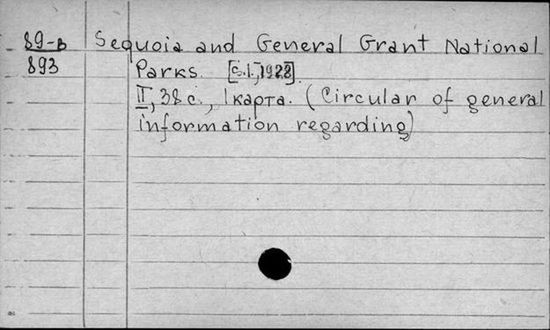 89-в Sequoia and General Grant National
893 Parks. [с.l.], 1928.
II, 38 с., 1 карта. (Circular of general
information regarding)